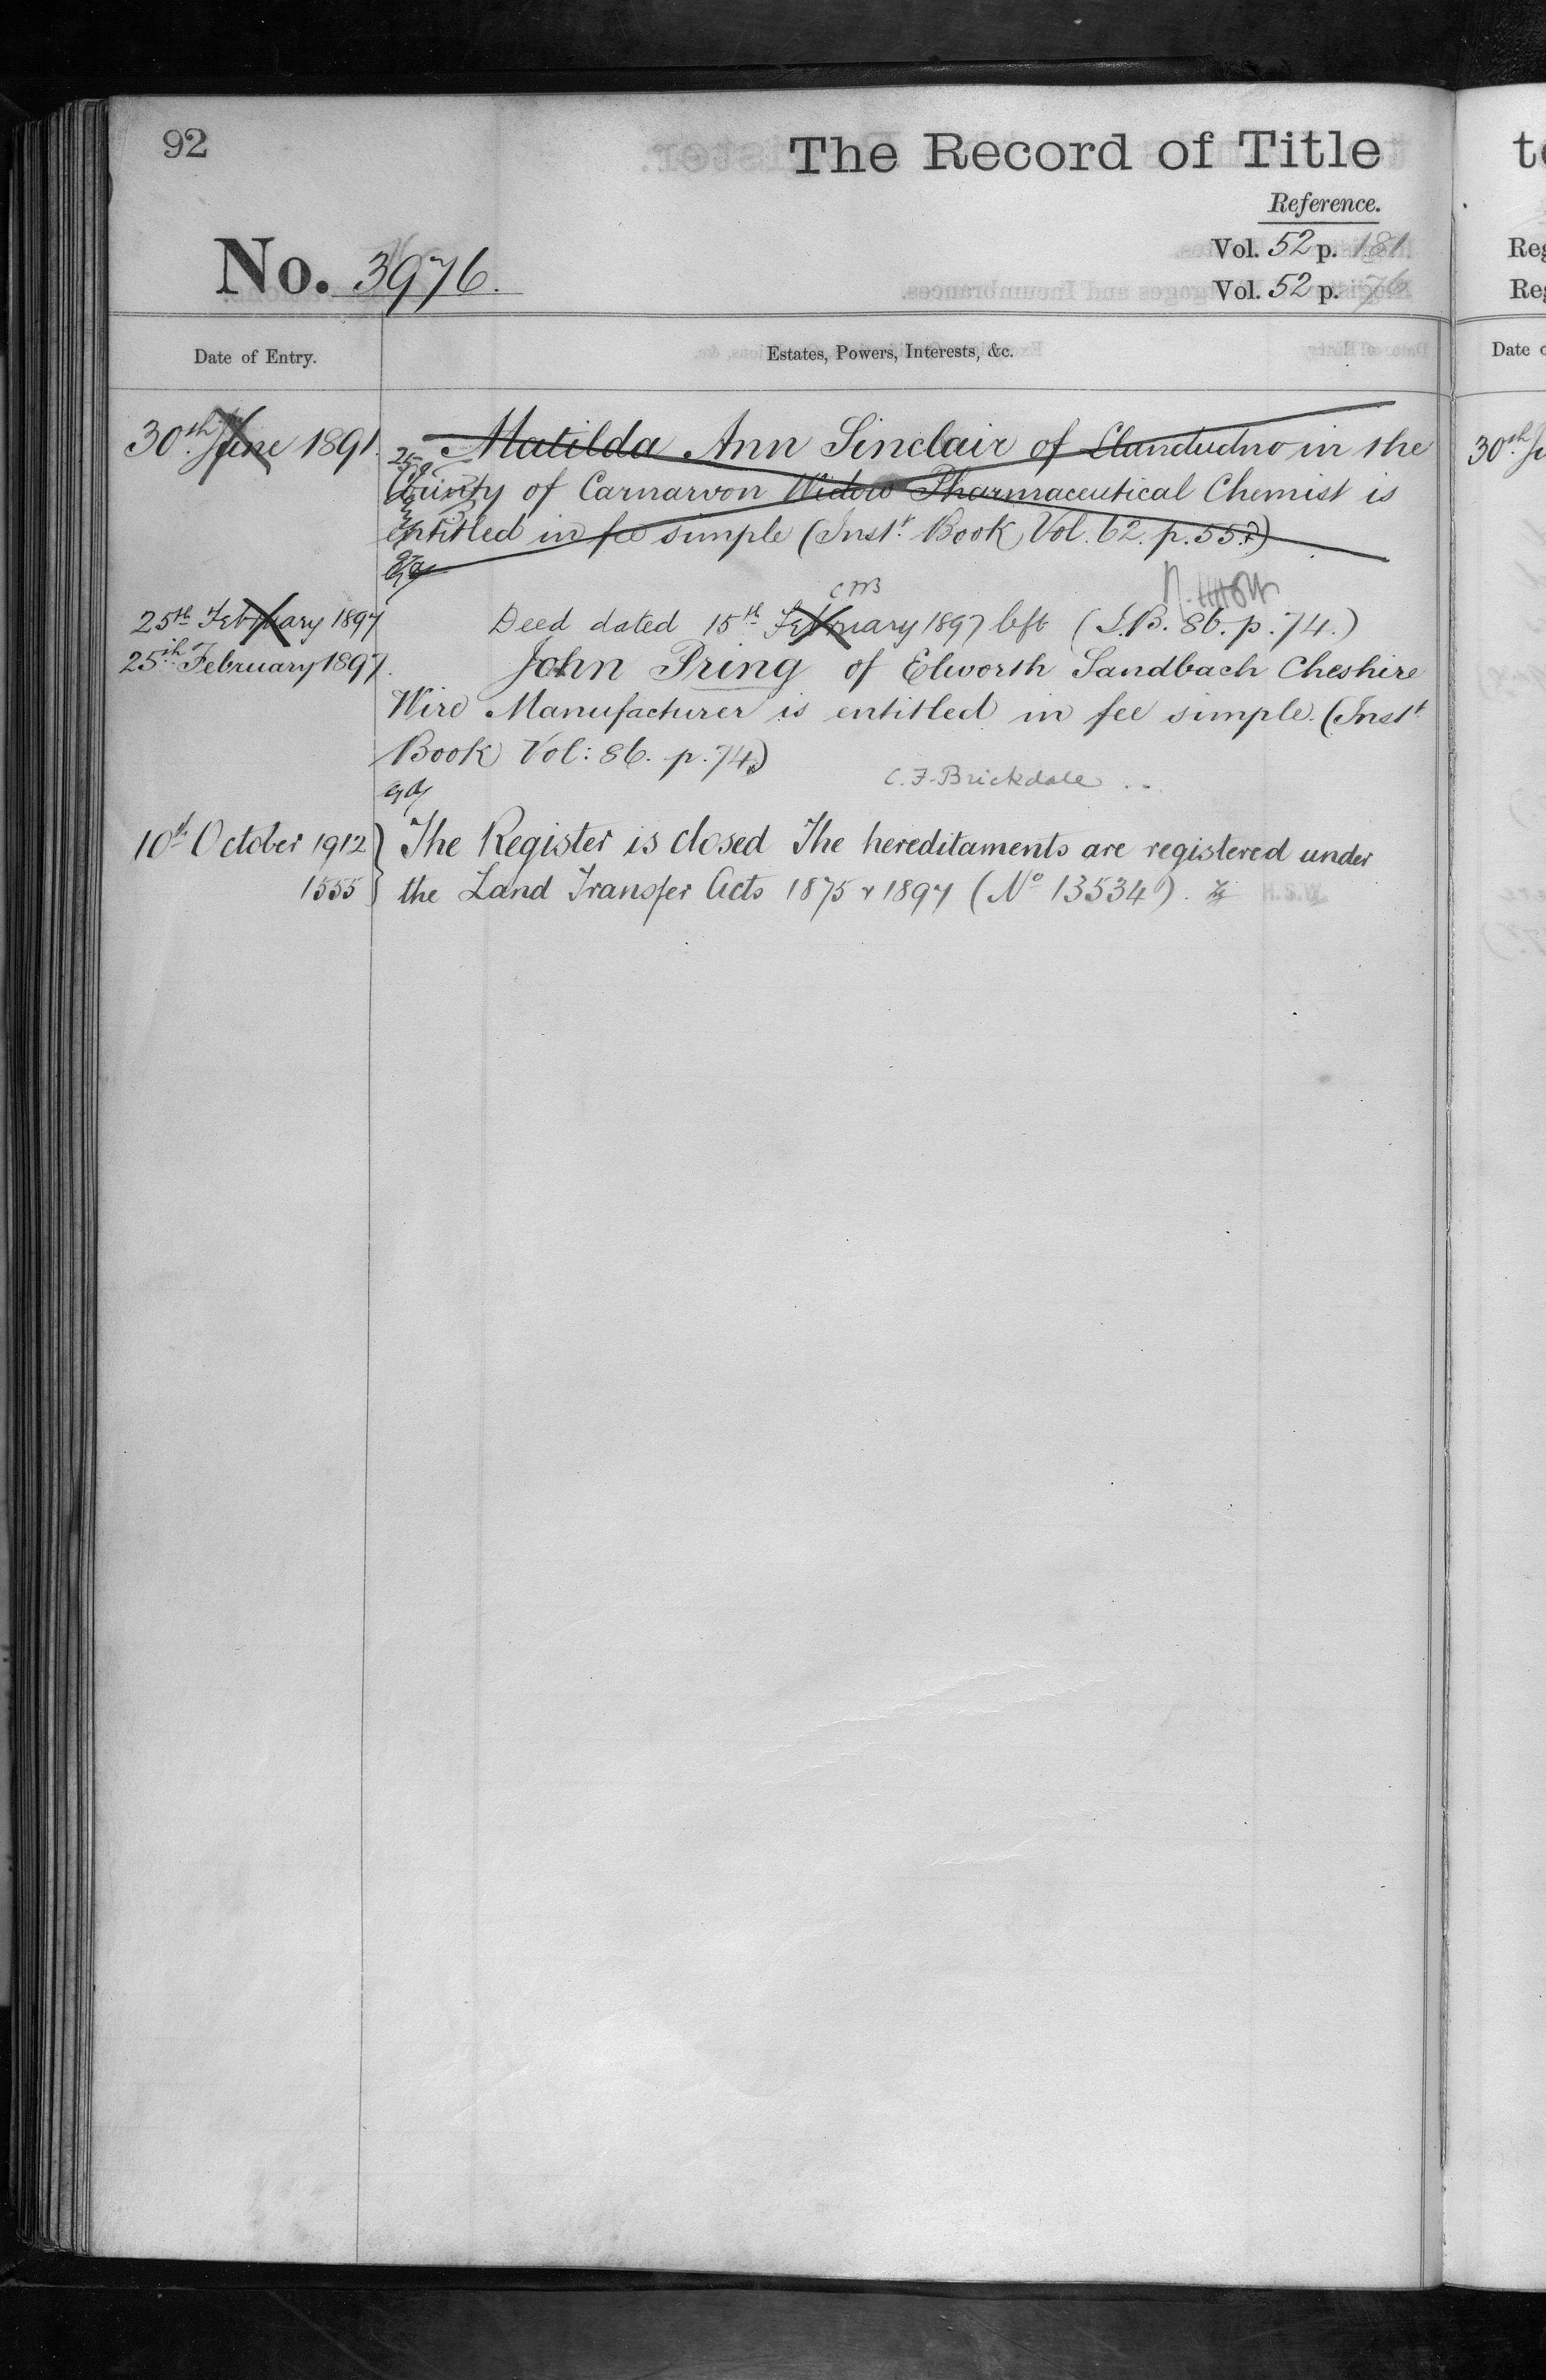 92
The Record of Title
Reference.
No. 3976.
Vol. 52 p. 181.
Vol. 52 p. 76
Date of Entry.
Estates, Powers, Interests, &c.
30th June 1891.
Matilda Ann Sinclair of Llandudno in the
County of Carnarvon Widow Pharmaceutical Chemist is
entitled in fee simple (Inst. Book Vol. 62. p. 55.)
25th February 1897
Deed dated 15th February 1897 left (I.B. 86. p. 74.)
25th February 1897.
John Pring of Elworth Sandbach Cheshire
Wire Manufacturer is entitled in fee simple. (Inst.
Book Vol: 86. p. 74.)
C. F. Brickdale
10th October 1912
1555
The Register is closed The hereditaments are registered under
the Land Transfer Acts 1875 & 1897 (No 13534).
to
Reg
Reg
Date o
30th Ju